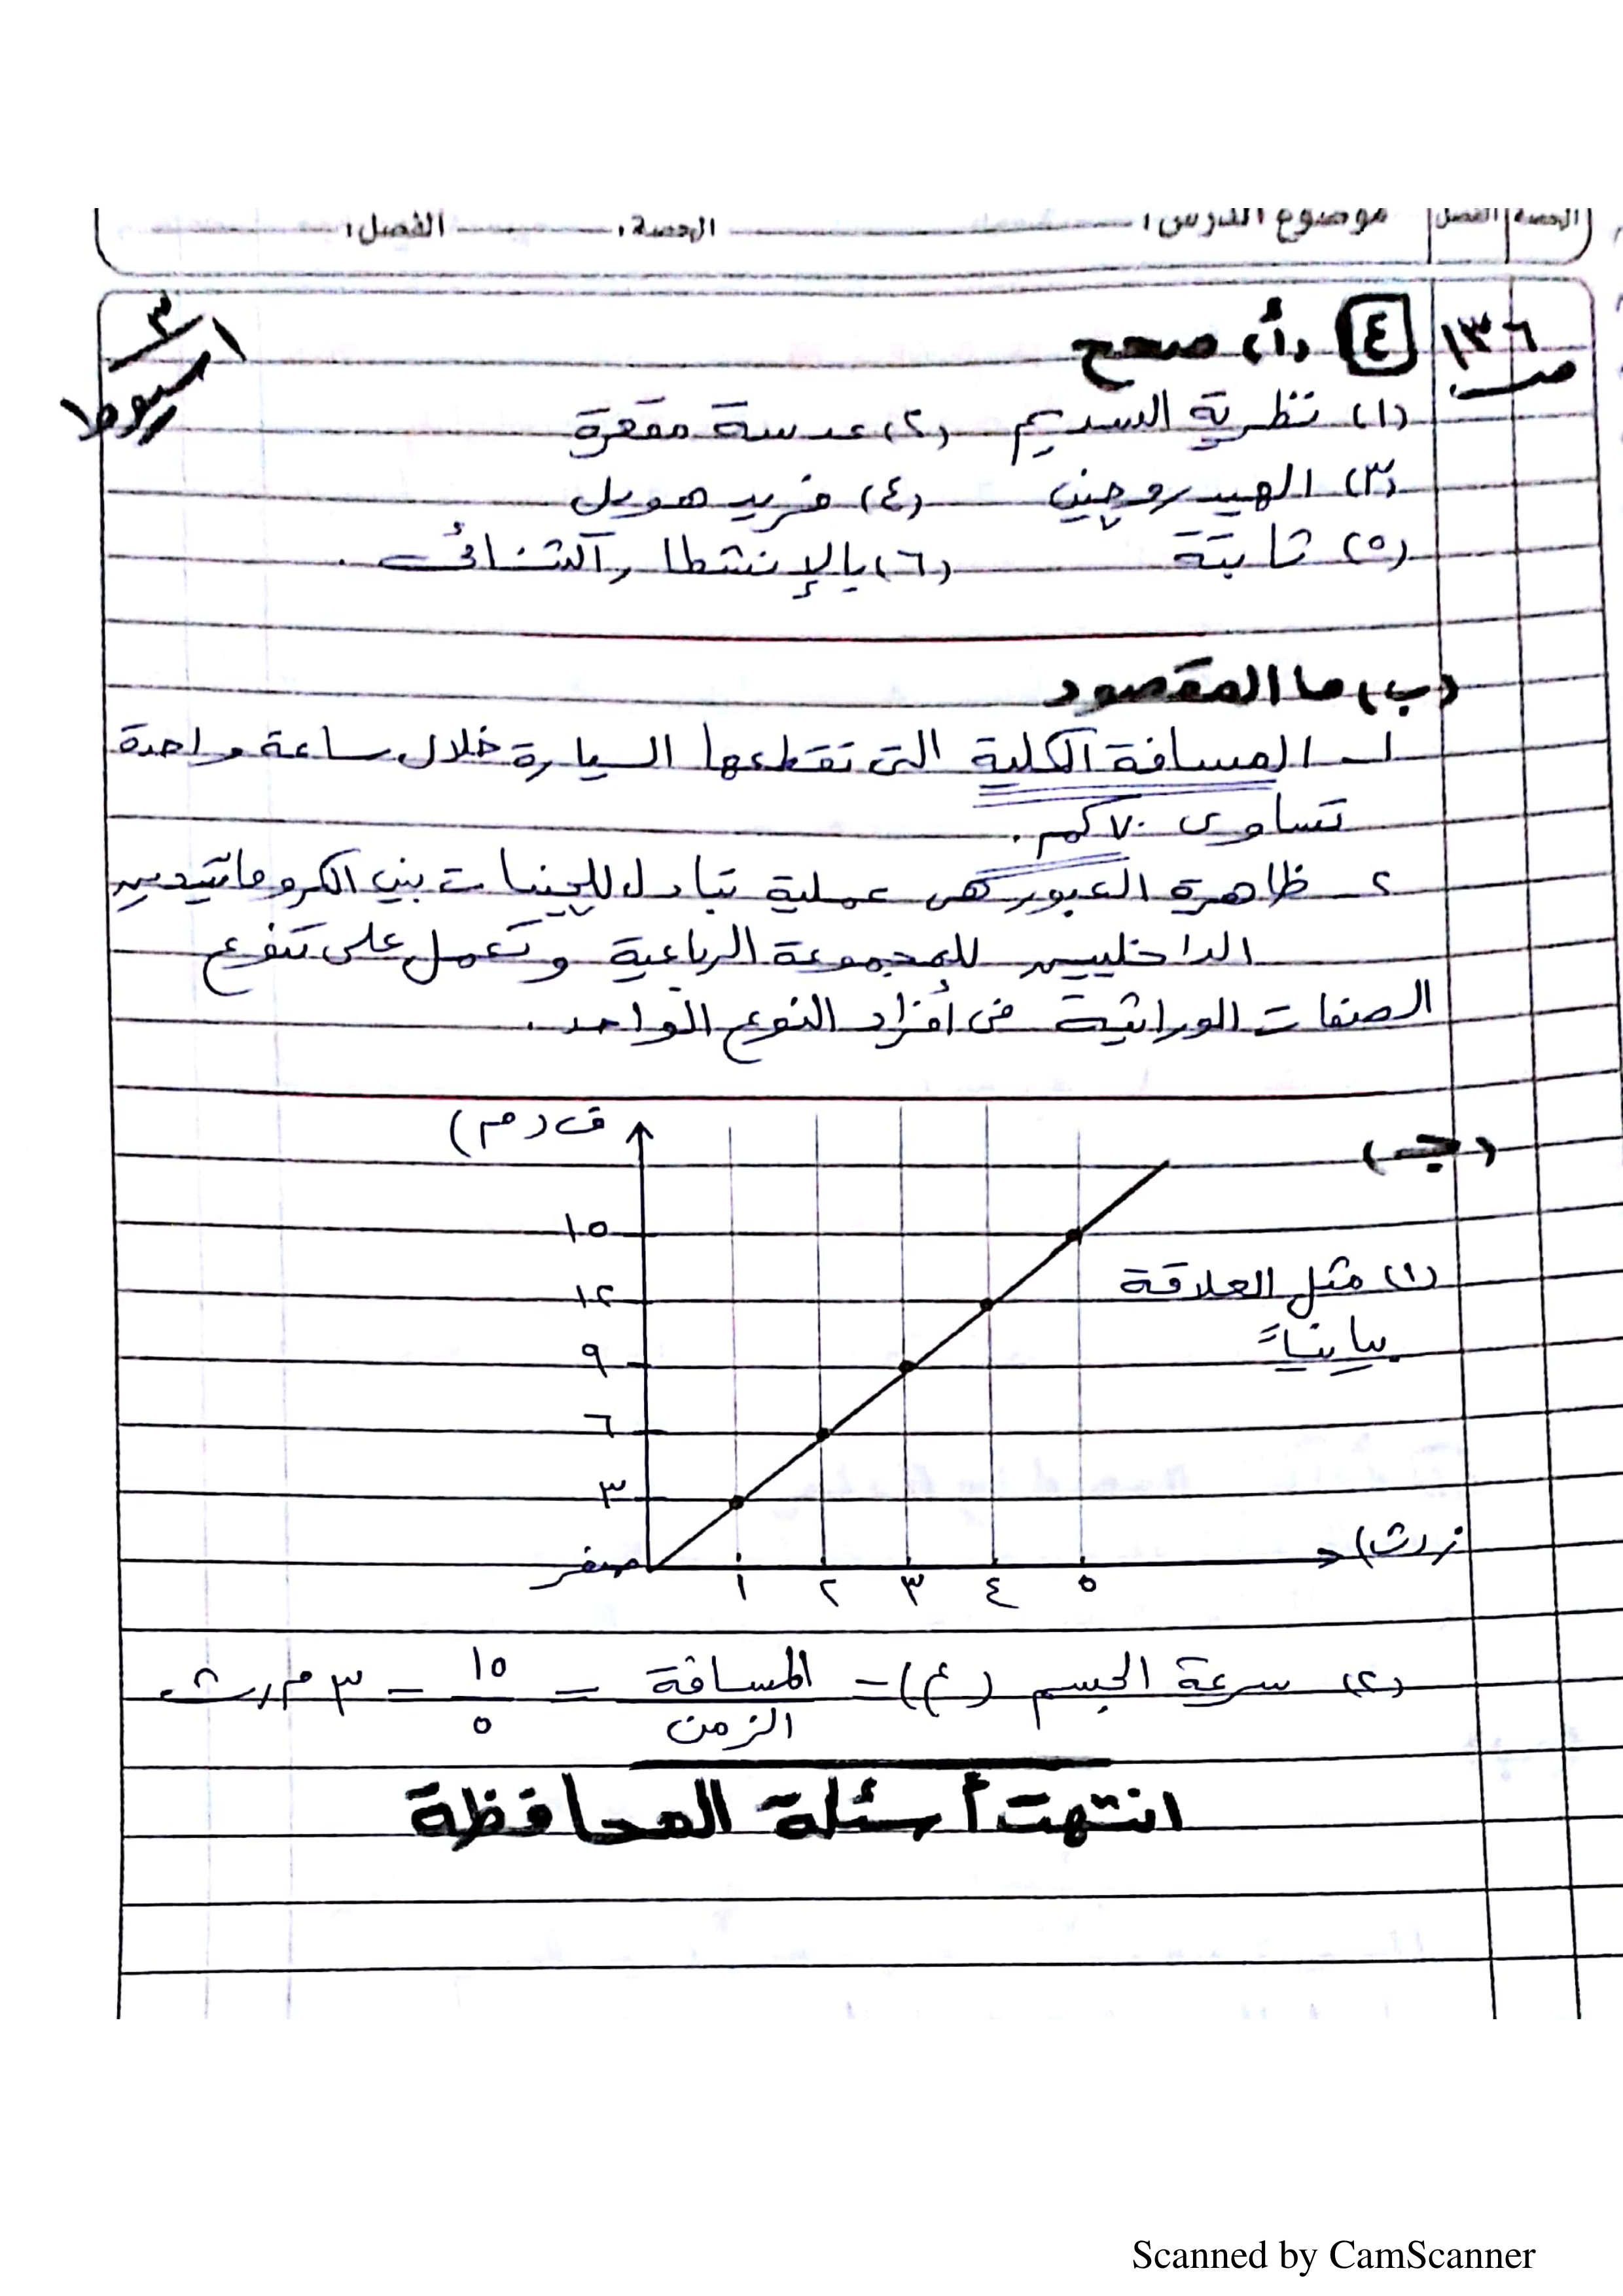 الحصة الفصل موضوع الدرس: الحصة: الفصل:
ص ١٣٦ ٤ (أ) صحح
٣ أسيوط
(١) نظرية السديم (٢) عدسة مقعرة
(٣) الهيدروجين (٤) فريد هويل
(٥) ثابتة (٦) بالإنشطار الثنائى.
(ب) ما المقصود
١- المسافة الكلية التى تقطعها السيارة خلال ساعة واحدة
تساوى ٧٠ كم.
٢- ظاهرة العبور هى عملية تبادل للجينات بين الكروماتيدين
الداخليين للمجموعة الرباعية وتعمل على تنوع
الصفات الوراثية فى أفراد النوع الواحد.
(جـ)
ف (م)
١٥
١٢
٩
٦
٣
صفر
١ ٢ ٣ ٤ ٥
ز (ث)
(١) مثل العلاقة
بيانياً
(٢) سرعة الجسم (ع) = المسافة / الزمن = ١٥ / ٥ = ٣ م/ث
انتهت أسئلة المحافظة
Scanned by CamScanner